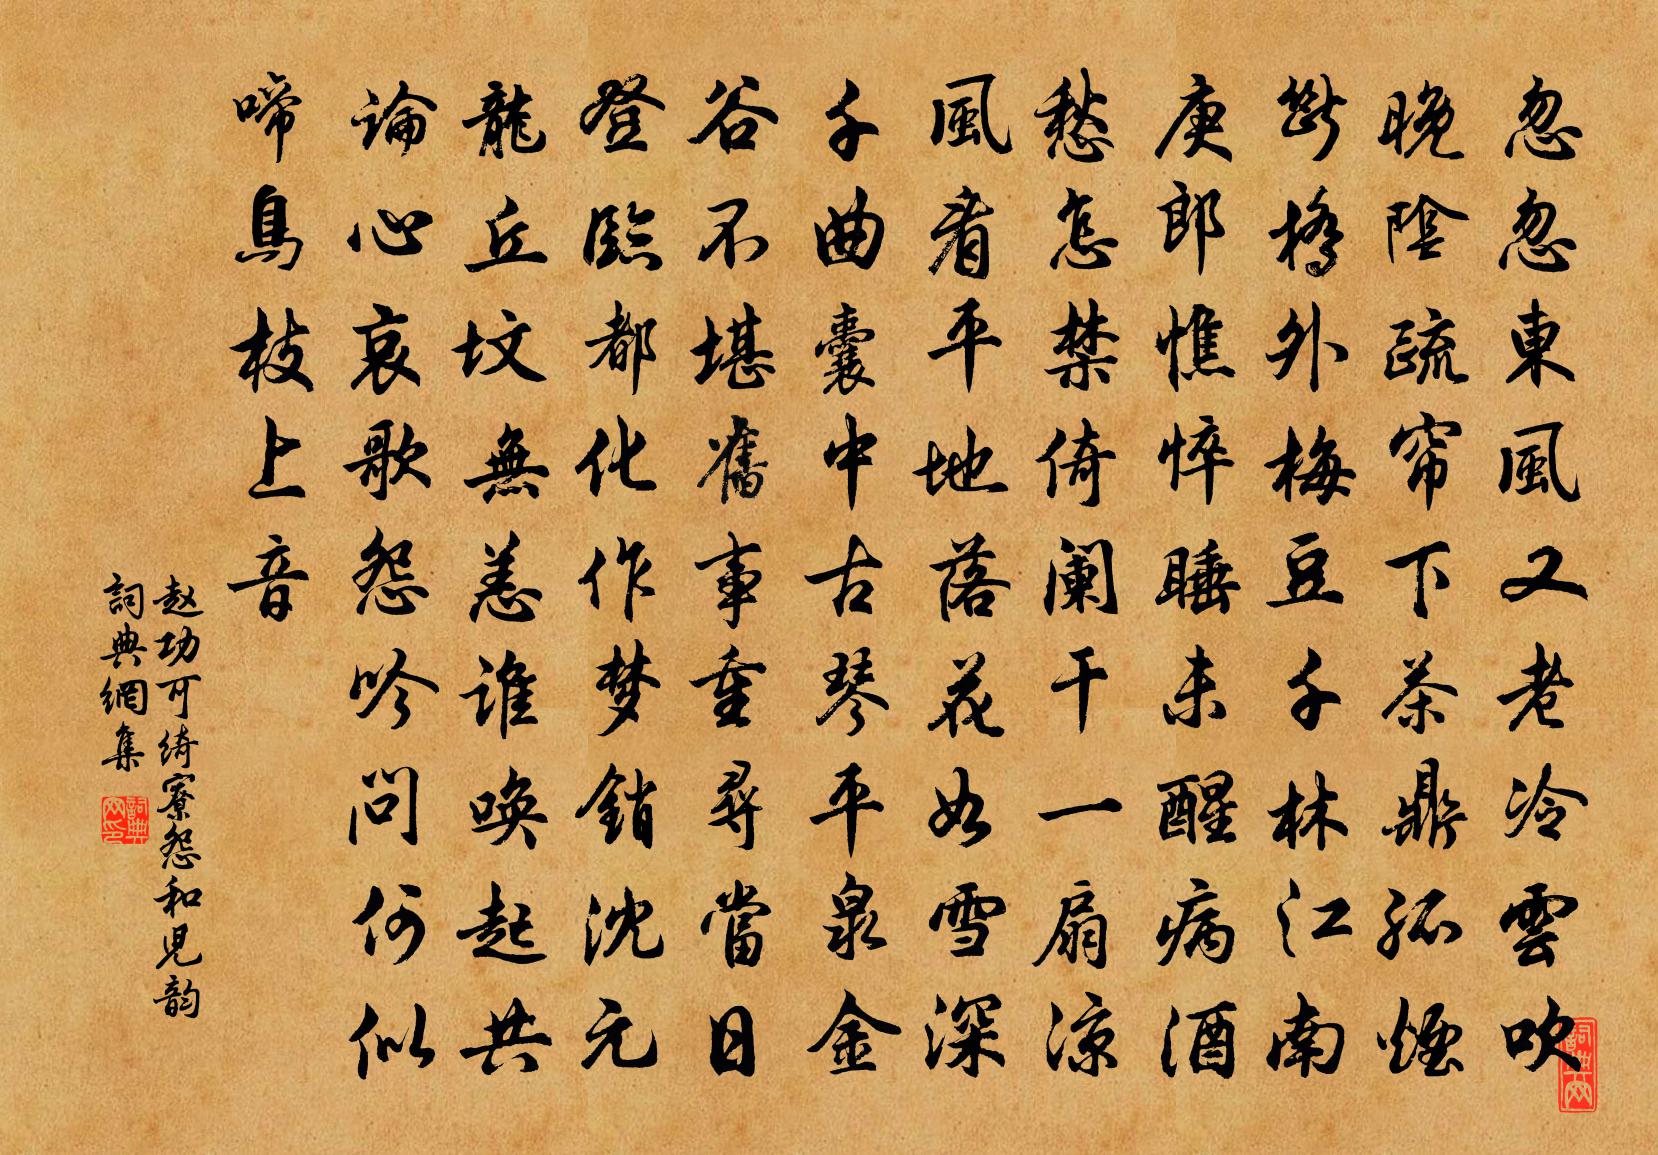 忽忽東風又老冷雲吹
晚陰疏帘下茶鼎孤煙
斷橋外梅豆千林江南
庾郎憔悴睡未醒病酒
愁怎禁倚阑干一扇凉
風看平地落花如雪深
千曲囊中古琴平泉金
谷不堪舊事重尋當日
登臨都化作梦銷沈元
龍丘坟無恙誰唤起共
論心哀歌怨吟问何似
啼鳥枝上音
赵功可绮寮怨和児韵
詞典網集
詞典网印
詞典网